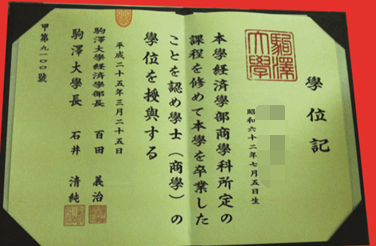 學位記
駒澤大學
昭和六十二年七月五日生
本學経済學部商學科所定の
課程を修めて本學を卒業した
ことを認め學士（商學）の
學位を授與する
平成二十五年三月二十五日
駒澤大學経済學部長 百田 義治
駒澤大學長 石井 清純
甲第九一〇〇號